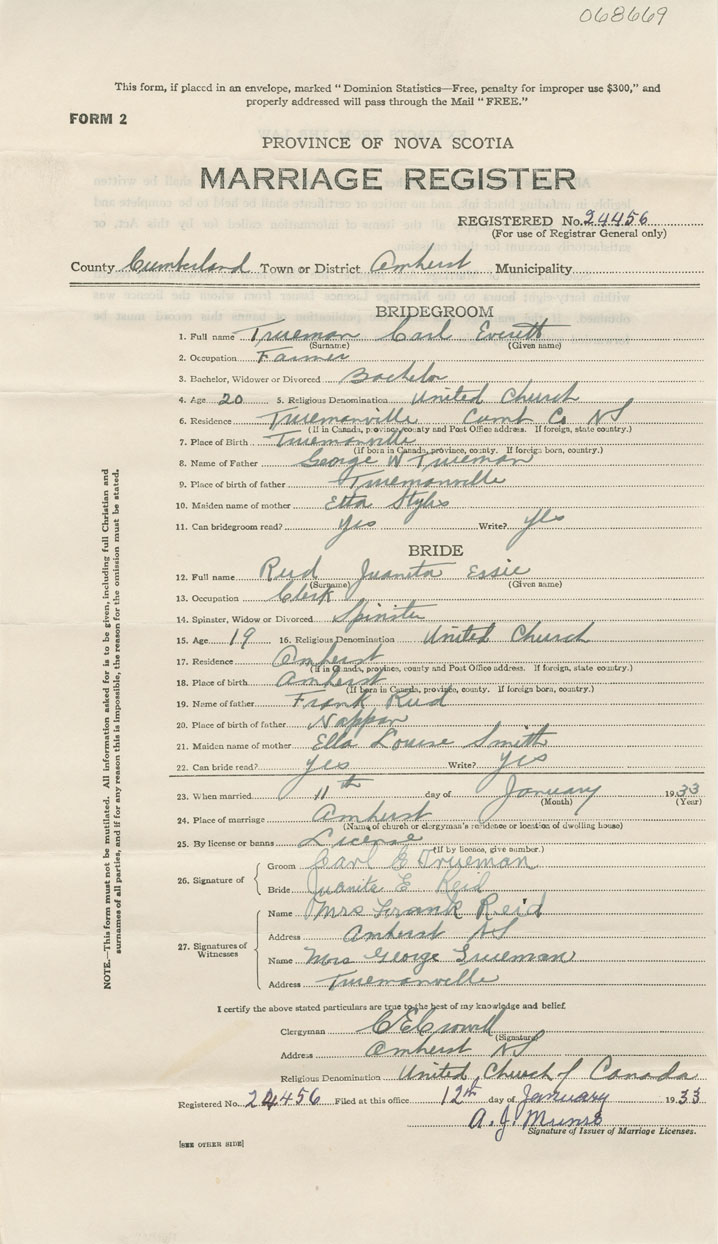 068669
This form, if placed in an envelope, marked "Dominion Statistics—Free, penalty for improper use $300," and
properly addressed will pass through the Mail "FREE."
FORM 2
PROVINCE OF NOVA SCOTIA
MARRIAGE REGISTER
REGISTERED No. 24456
(For use of Registrar General only)
County Cumberland Town or District Amherst Municipality
BRIDEGROOM
1. Full name Trueman Carl Everett
(Surname) (Given name)
2. Occupation Farmer
3. Bachelor, Widower or Divorced Bachelor
4. Age 20 5. Religious Denomination United Church
6. Residence Truemanville Cumb Co NS
(If in Canada, province, county and Post Office address. If foreign, state country.)
7. Place of Birth Truemanville
(If born in Canada, province, county. If foreign born, country.)
8. Name of Father George W Trueman
9. Place of birth of father Truemanville
10. Maiden name of mother Etta Styles
11. Can bridegroom read? Yes Write? Yes
BRIDE
12. Full name Reid Juanita Essie
(Surname) (Given name)
13. Occupation Clerk
14. Spinster, Widow or Divorced Spinster
15. Age 19 16. Religious Denomination United Church
17. Residence Amherst
(If in Canada, province, county and Post Office address. If foreign, state country.)
18. Place of birth Amherst
(If born in Canada, province, county. If foreign born, country.)
19. Name of father Frank Reid
20. Place of birth of father Nappan
21. Maiden name of mother Ella Louise Smith
22. Can bride read? Yes Write? Yes
23. When married 11th day of January 1933
(Month) (Year)
24. Place of marriage Amherst
(Name of church or clergyman's residence or location of dwelling house)
25. By license or banns License
(If by licence, give number.)
26. Signature of Groom Carl E Trueman
Bride Juanita E Reid
27. Signatures of Witnesses Name Mrs Frank Reid
Address Amherst NS
Name Mrs George Trueman
Address Truemanville
NOTE.—This form must not be mutilated. All information asked for is to be given, including full Christian and
surnames of all parties, and if for any reason this is impossible, the reason for the omission must be stated.
I certify the above stated particulars are true to the best of my knowledge and belief.
Clergyman C E Crowell
(Signature)
Address Amherst NS
Religious Denomination United Church of Canada
Registered No. 24456 Filed at this office 12th day of January 1933
A. J. Munro
Signature of Issuer of Marriage Licenses.
[SEE OTHER SIDE]